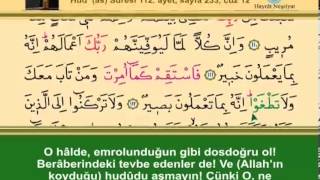 Hûd (as) Sûresi 112, âyet, sayfa 233, cüz 12
Hayrât Neşriyat
مُرِيبٍ ﴿١١٠﴾ وَاِنَّ كُلًّا لَمَّا لَيُوَفِّيَنَّهُمْ رَبُّكَ اَعْمَالَهُمْ اِنَّهُ
بِمَا يَعْمَلُونَ خَبِيرٌ ﴿١١١﴾ فَاسْتَقِمْ كَمَا اُمِرْتَ وَمَنْ تَابَ مَعَكَ
وَلَا تَطْغَوْا اِنَّهُ بِمَا تَعْمَلُونَ بَصِيرٌ ﴿١١٢﴾ وَلَا تَرْكَنُوا اِلَى الَّذِينَ
O hâlde, emrolunduğun gibi dosdoğru ol!
Berâberindeki tevbe edenler de! Ve (Allah'ın
koyduğu) hudûdu aşmayın! Çünki O, ne